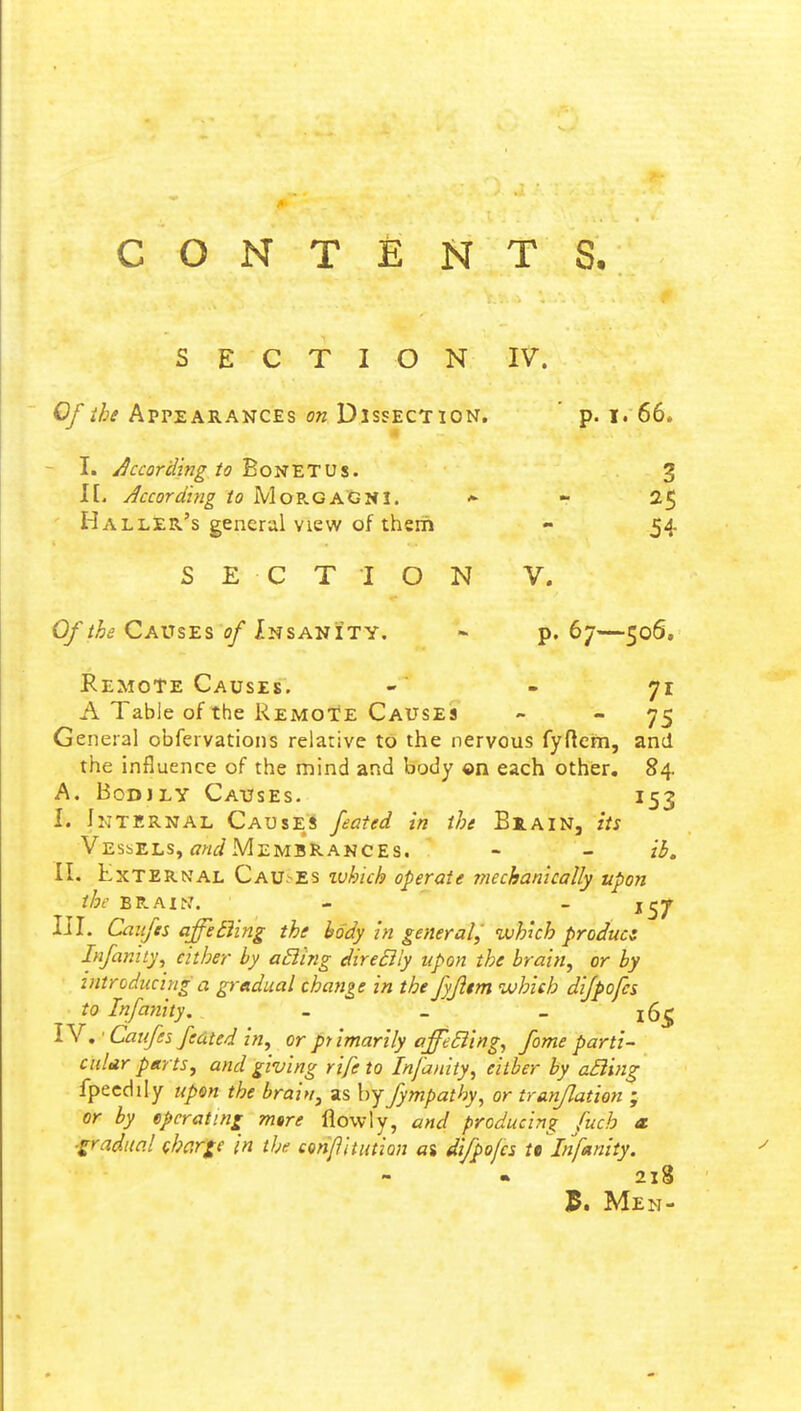 CONTENTS.
SECTION IV.
Of the APPEARANCES on DISSECTION. p. 1. 66.
I. According to BONETUS. 3
II. According to MORGAGNI. - - 25
HALLER's general view of them - 54
SECTION V.
Of the CAUSES of INSANITY. - p. 67—506.
REMOTE CAUSES. - - 71
A Table of the REMOTE CAUSES - - 75
General obſervations relative to the nervous ſyſtem, and
the influence of the mind and body on each other. 84
A. BODILY CAUSES. 153
I. INTERNAL CAUSES ſeated in the BRAIN, its
VESSELS, and MEMBRANCES. - - ib.
II. EXTERNAL CAUSES which operate mechanically upon
the BRAIN. - - 157
III. Cauſes affecting the body in general, which produce
Inſanity, either by acting directly upon the brain, or by
introducing a gradual change in the ſyſtem which diſpoſes
to Inſanity. - - - 165
IV. Cauſes ſeated in, or primarily affecting, ſome parti-
cular parts, and giving riſe to Inſanity, either by acting
ſpeedily upon the brain, as by ſympathy, or tranſlation ;
or by operating more ſlowly, and producing ſuch a
gradual charge in the conſtitution as diſpoſes to Inſanity.
- - 218
B. MEN-